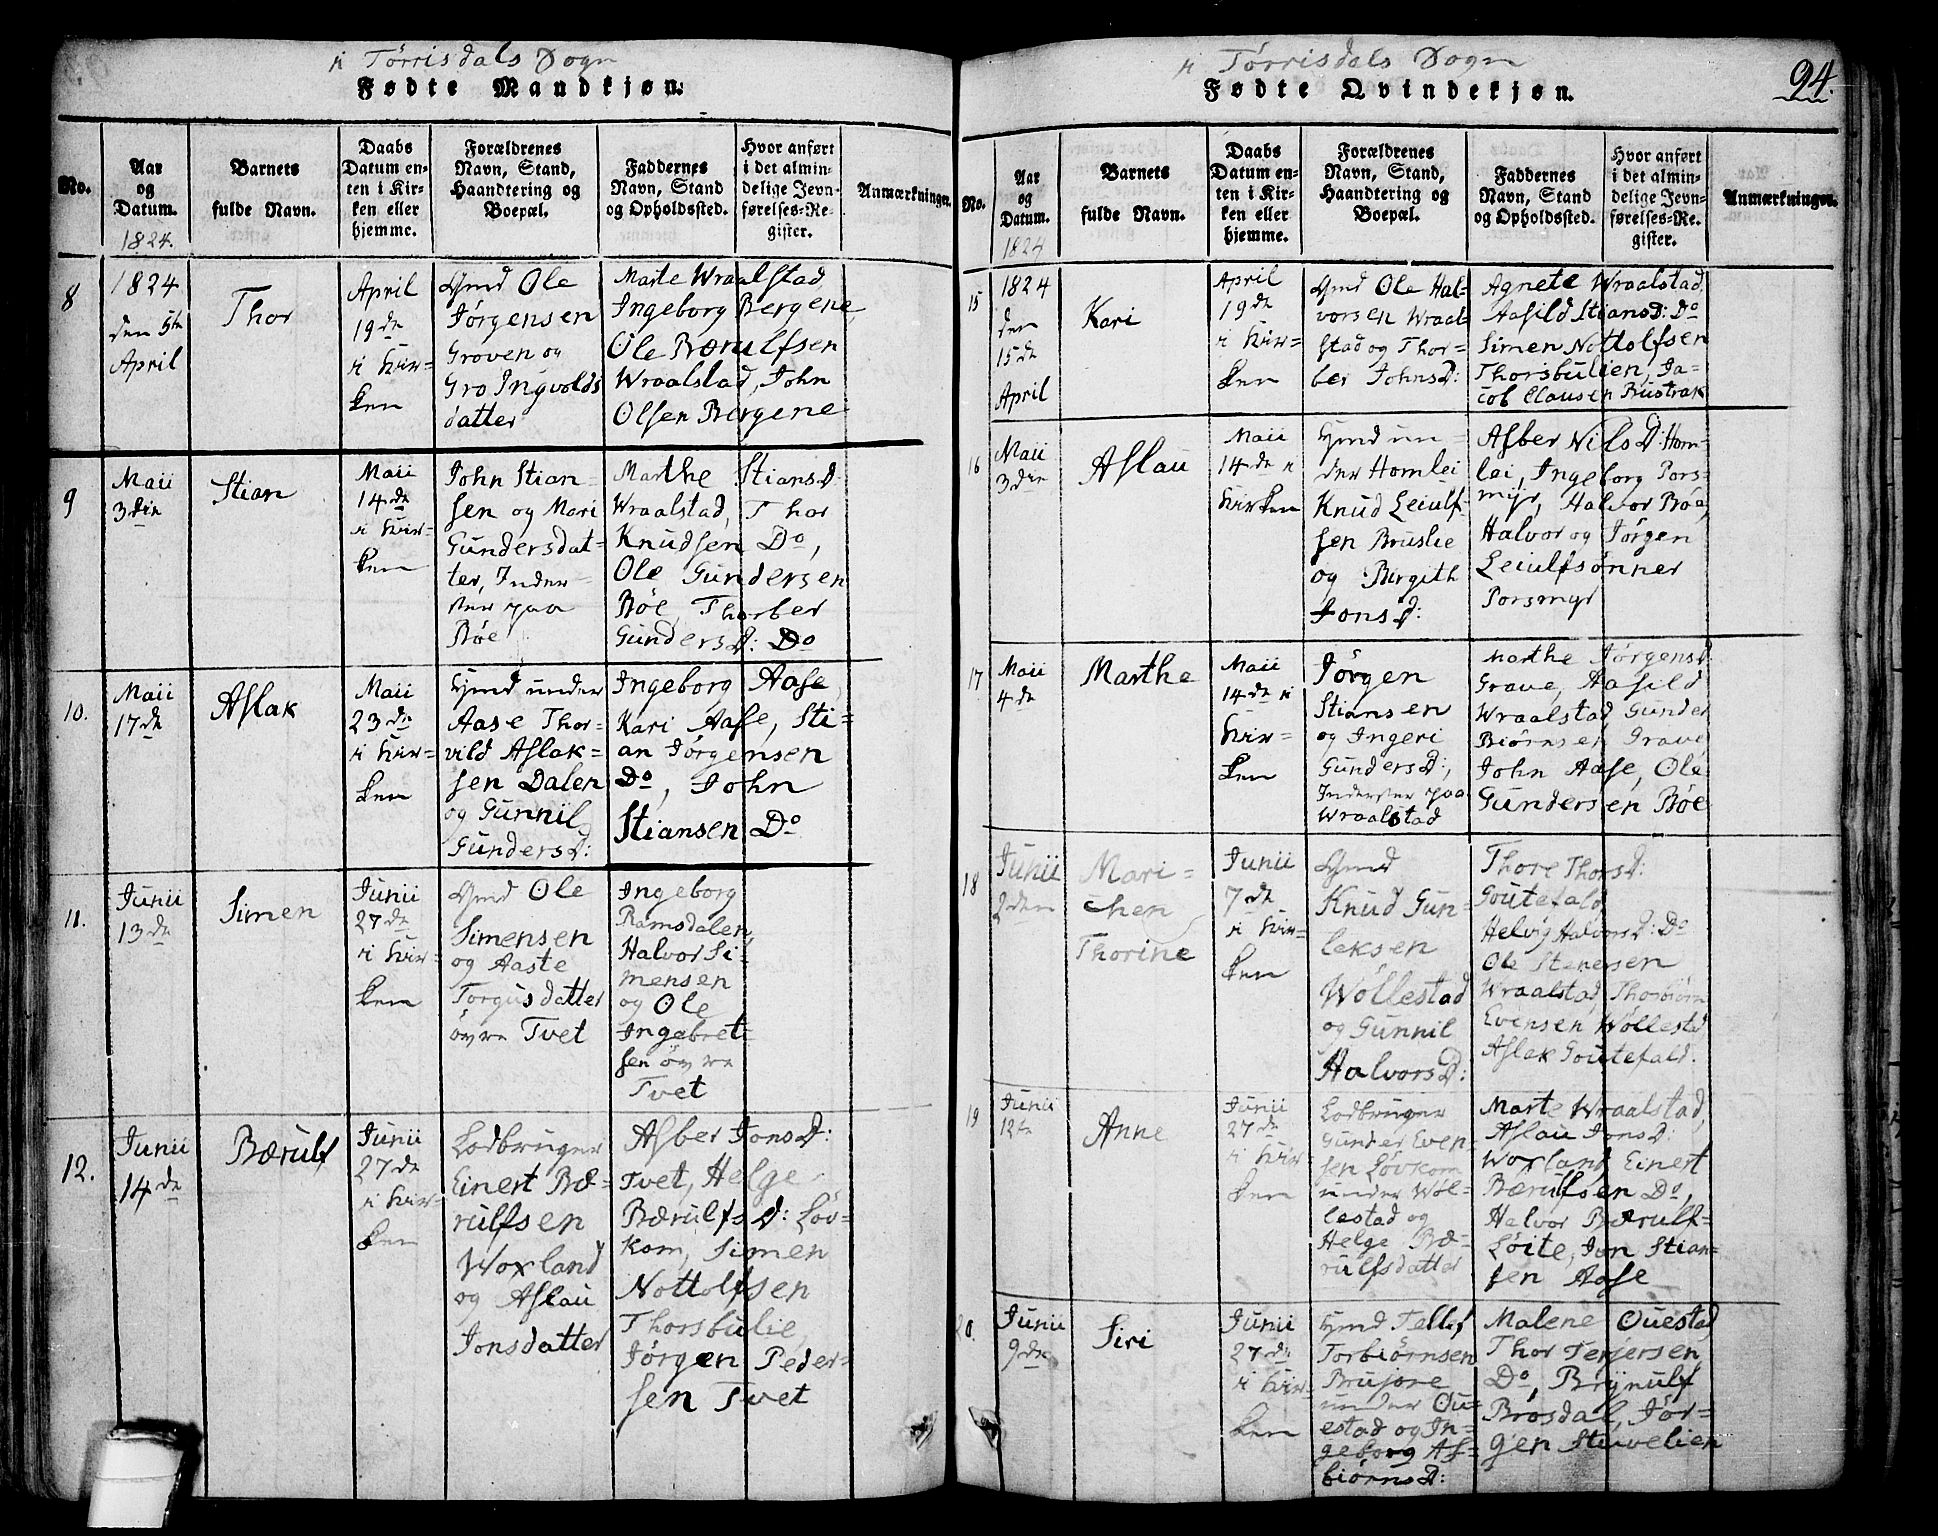 i Tørrisdals Sogn
Fødte Mandkjøn.
No.
Aar
og
Datum.
1824.
Barnets
fulde Navn.
Daabs
Datum en-
ten i Kir-
ken eller
hjemme.
Forældrenes
Navn, Stand,
Haandtering og
Boepæl.
Faddernes
Navn, Stand
og Opholdssted.
Hvor anført
i det almin-
delige Jevn-
førelses-Re-
gister.
Anmærkninger.
8
1824
den 5te
April
Thor
April
19de
i Kir-
ken
Gmd Ole
Jørgensen
Groven og
Gro Ingvolds
datter
Marte Wraalstad,
Ingeborg Bergene,
Ole Bærulfsen
Wraalstad, John
Olsen Bergene
9
Maii
3die
Stian
Maii
14de
i Kir-
ken
John Stian-
sen og Mari
Gundersdat-
ter, Inder-
ster paa
Bøe
Marthe Stiansd:
Wraalstad, Thor
Knudsen Do,
Ole Gundersen
Bøe, Thorber
Gundersd: Do
10.
Maii
17de
Aslak
Maii
23de
i Kir-
ken
Hmd under
Aase Thor-
vild Aslak-
sen Dalen
og Gunnil
Gundersd:
Ingeborg Aase,
Kari Aase, Sti-
an Jørgensen
Do, John
Stiansen Do
11.
Junii
13de
Simen
Junii
27de
i Kir-
ken
Gmd Ole
Simensen
og Aaste
Torgusdatter
øvre Tvet
Ingeborg
Ramsdalen,
Halvor Si-
mensen
og Ole
Ingebret-
sen øvre
Tvet
12.
Junii
14de
Bærulf
Junii
27de
i Kir-
ken
Lodbruger
Einert Bæ-
rulfsen
Woxland
og Aslau
Jonsdatter
Asber Jonsd:
Tvet, Helge
Bærulfsd: Løv-
kom, Simen
Nottolfsen
Thorsbulie,
Jørgen Peder-
sen Tvet
94.
i Tørrisdals Sogn
Fødte Qvindekjøn.
No.
Aar
og
Datum.
1824
Barnets
fulde Navn.
Daabs
Datum en-
ten i Kir-
ken eller
hjemme.
Forældrenes
Navn, Stand,
Haandtering og
Boepæl.
Faddernes
Navn, Stand
og Opholdssted.
Hvor anført
i det almin-
delige Jevn-
førelses-Re-
gister.
Anmærkninger.
15
1824
den
15de
April
Kari
April
19de
i Kir-
ken
Gmd Ole Hal-
vorsen Wraal-
stad og Thor-
ber Johnsd:
Agnete Wraalstad,
Aasild Stiansd: Do
Simen Nottolfsen
Thorsbulien, Ja-
cob Clausen Bustrak
16
Maii
3die
Aslau
Maii
14de i
Kirken
Hmd un-
der Homlei
Knud Leiulf-
sen Bruslie
og Birgith
Jonsd:
Asber Nilsd: Hom-
lei, Ingeborg Pors-
myr, Halvor Bøe,
Halvor og Jørgen
Leiulfsønner
Porsmyr
17
Maii
4de
Marthe
Maii
14de i
Kir-
ken
Jørgen
Stiansen
og Ingeri
Gundersd:,
Inderster paa
Wraalstad
Marthe Jørgensd:
Grave, Aasild
Wraalstad, Gunder
Biørnsen Grave,
John Aase, Ole
Gundersen Bøe
18
Junii
2den
Mari-
chen
Thorine
Junii
7de
i Kir-
ken
Gmd
Knud Gun-
leksen
Wøllestad
og Gunnil
Halvorsd:
Thore Thorsd:
Goutefald,
Helvig Halvorsd: Do
Ole Stenersen
Wraalstad, Thorbiørn
Evensen Wøllestad
Aslak Goutefald.
19
Junii
12te
Anne
Junii
27de
i Kir-
ken
Lodbruger
Gunder Even-
sen Løvkom
under Wøl-
lestad og
Helge Bæ-
rulfsdatter
Marte Wraalstad,
Aslau Jonsd:
Woxland, Einert
Bærulfsen Do,
Halvor Bærulf-
Løite, Jon Stian-
sen Aase
20.
Junii
9de
Siri
Junii
27de
i Kir-
ken
Hmd Tellef
Torbiørnsen
Brujore
under Ou-
estad og In-
geborg As-
biørnsd:
Malene Ouestad
Thor Terjersen
Do, Brynulf
Brosdal, Jør-
gen Stuvelien